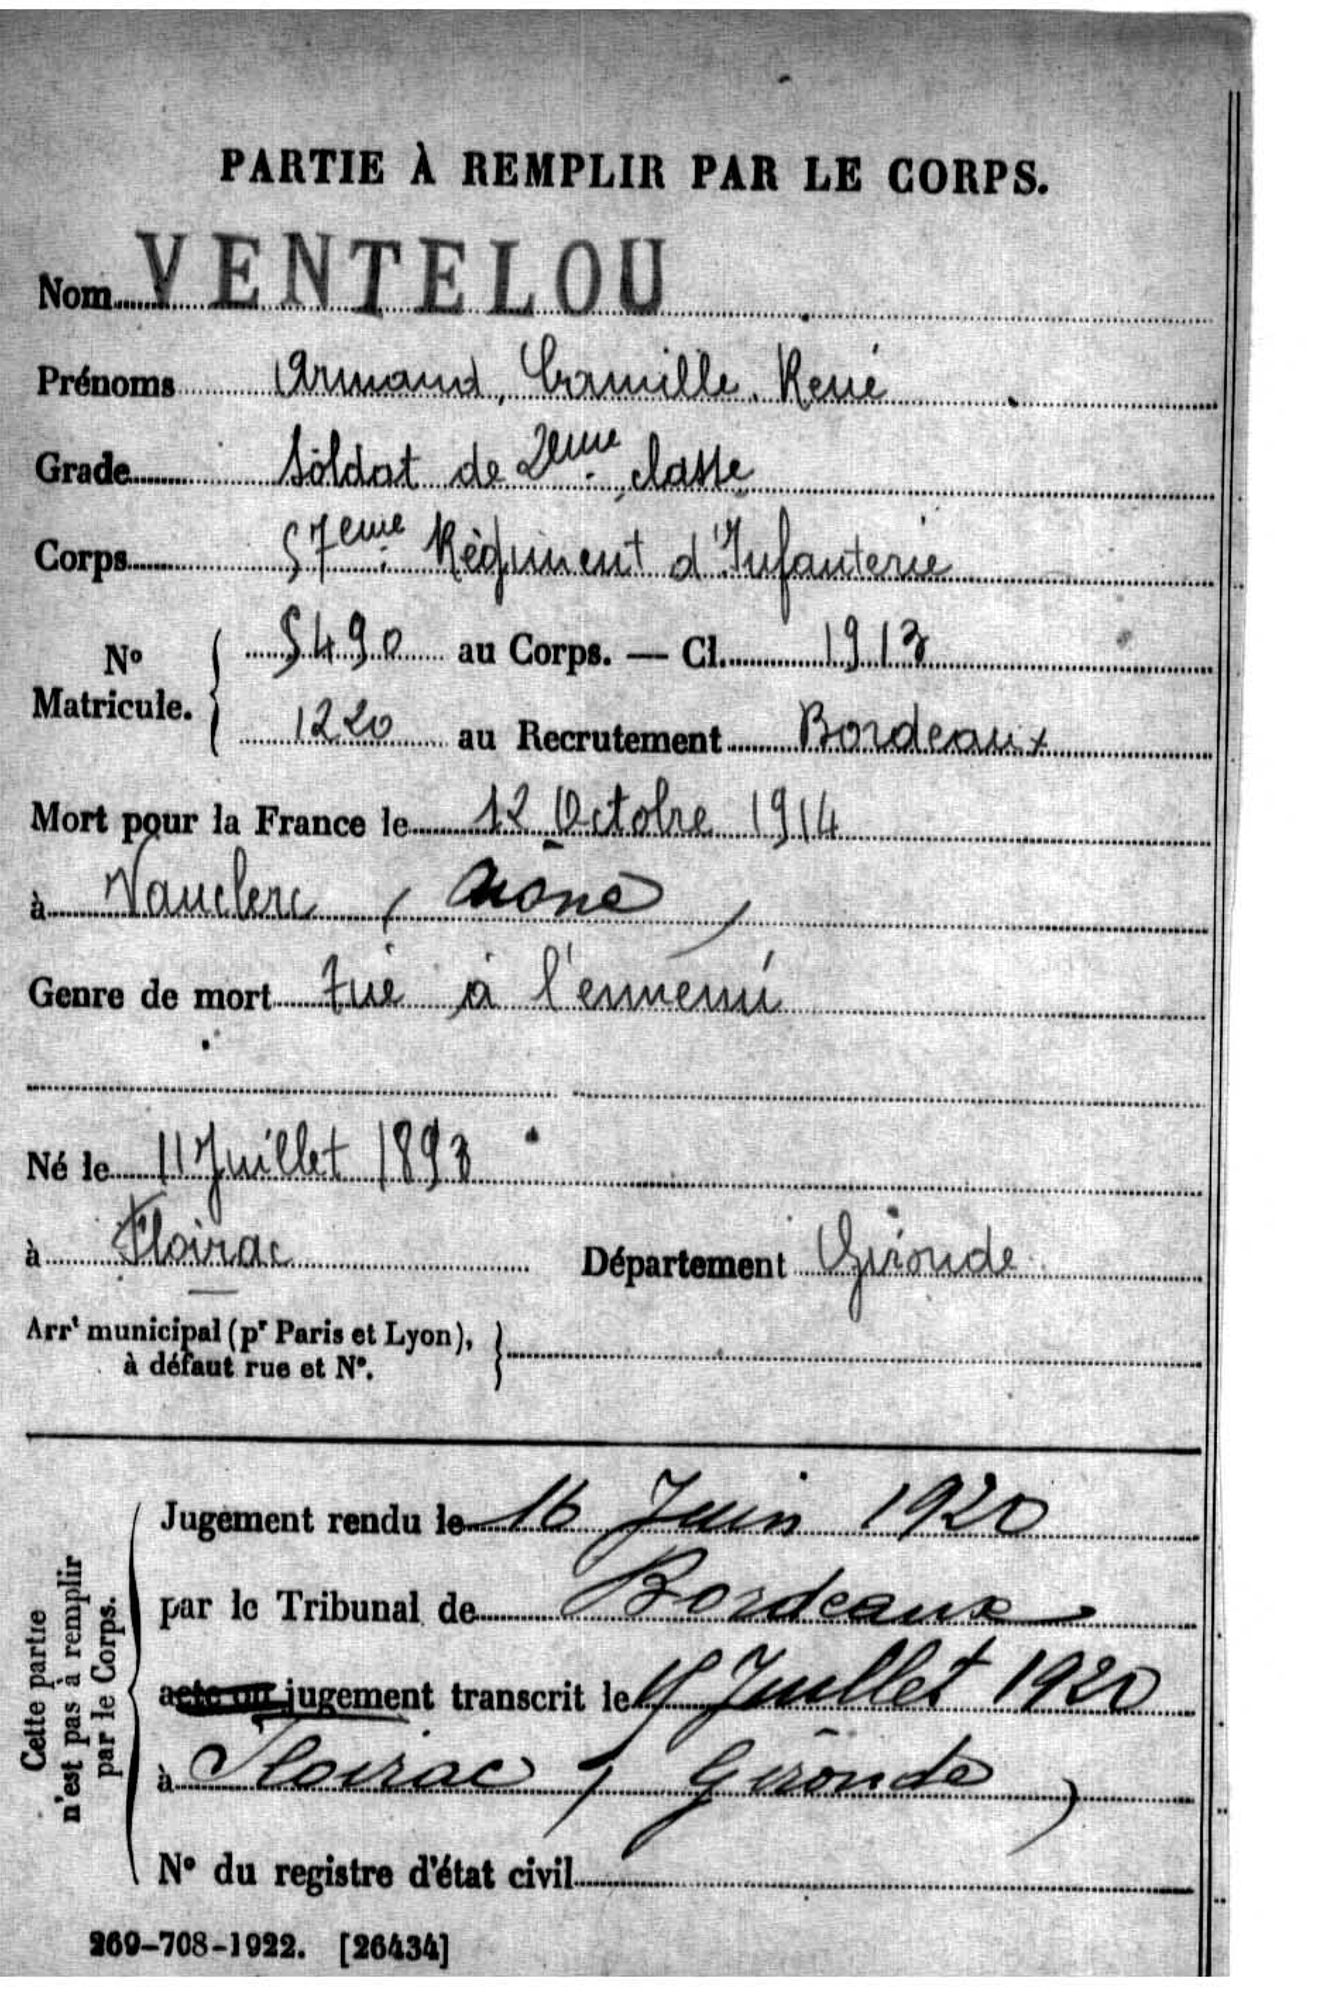 PARTIE À REMPLIR PAR LE CORPS.
Nom VENTELOU
Prénoms Armand, Camille, René
Grade Soldat de 2eme classe
Corps 57eme Régiment d'Infanterie
N° Matricule. 5490 au Corps. — Cl. 1913
1220 au Recrutement Bordeaux
Mort pour la France le 12 Octobre 1914
à Vauclerc ( Aisne )
Genre de mort tué à l'ennemi
Né le 11 Juillet 1893
à Floirac Département Gironde
Arrt municipal (pr Paris et Lyon),
à défaut rue et N°.
Cette partie
n'est pas à remplir
par le Corps.
Jugement rendu le 16 Juin 1920
par le Tribunal de Bordeaux
acte ou jugement transcrit le Juillet 1920
à Floirac ( Gironde )
N° du registre d'état civil
269-708-1922. [26434]